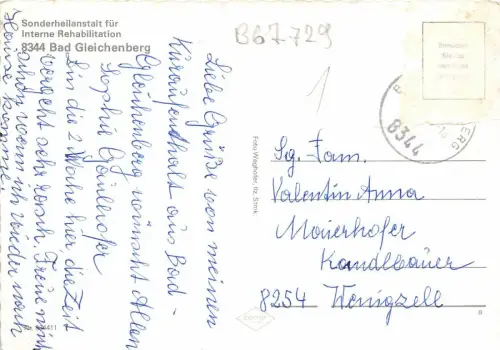 Sonderheilanstalt für
Interne Rehabilitation
8344 Bad Gleichenberg
B67729
1
Liebe Grüße von meinen
Kuraufenthalt aus Bad-
Gleichenberg wünscht Allen
Bin die 2 Woche hier die Zeit
vergeht sehr rasch. Freue mich
schon wenn ich wieder nach
Hause komme.
Foto Waghofer, Ilz, Stmk.
8344
Sg. Fam.
Valentin Anna
Maierhofer
Kandlbauer
8254 Wenigzell